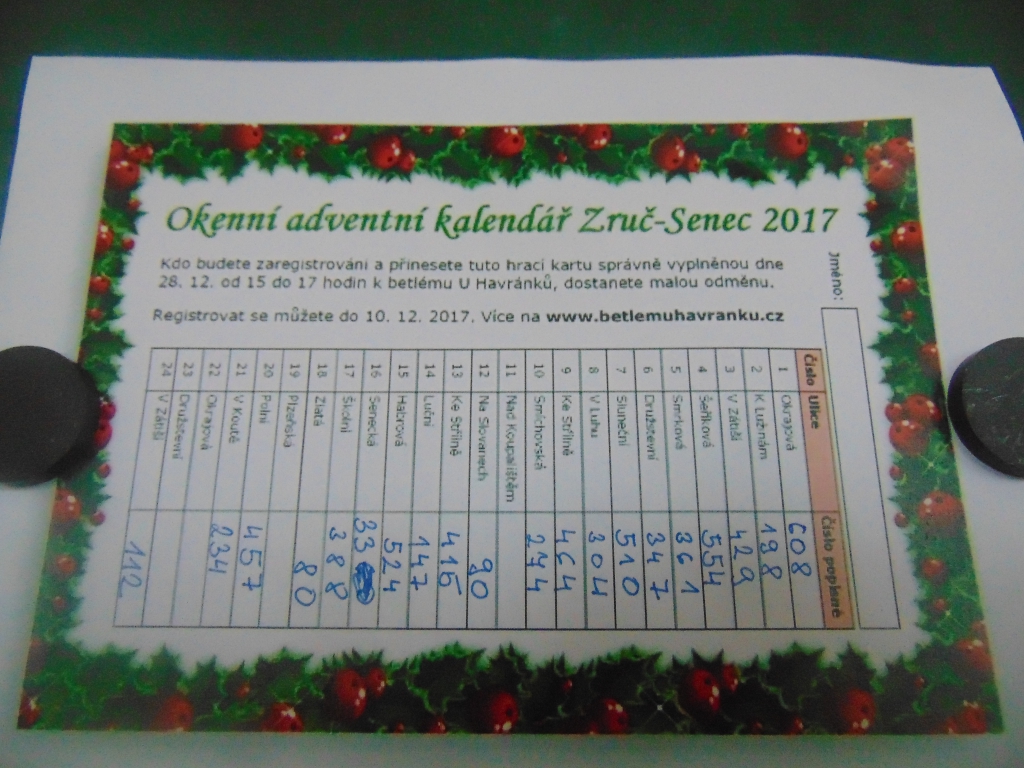 Okenní adventní kalendář Zruč-Senec 2017
Kdo budete zaregistrováni a přinesete tuto hrací kartu správně vyplněnou dne
28. 12. od 15 do 17 hodin k betlému U Havránků, dostanete malou odměnu.
Registrovat se můžete do 10. 12. 2017. Více na www.betlemuhavranku.cz
Jméno:
Číslo Ulice Číslo popisné
1 Okrajová 608
2 K Lužinám 198
3 V Zátiší 429
4 Šeříková 554
5 Smrková 361
6 Družstevní 347
7 Sluneční 510
8 V Luhu 304
9 Ke Střílně 464
10 Smíchovská 244
11 Nad Koupalištěm
12 Na Slovanech 90
13 Ke Střílně 415
14 Luční 147
15 Habrová 524
16 Senecká 33
17 Školní 388
18 Zlatá 80
19 Plzeňská
20 Polní 457
21 V Koutě 234
22 Okrajová
23 Družstevní
24 V Zátiší 112